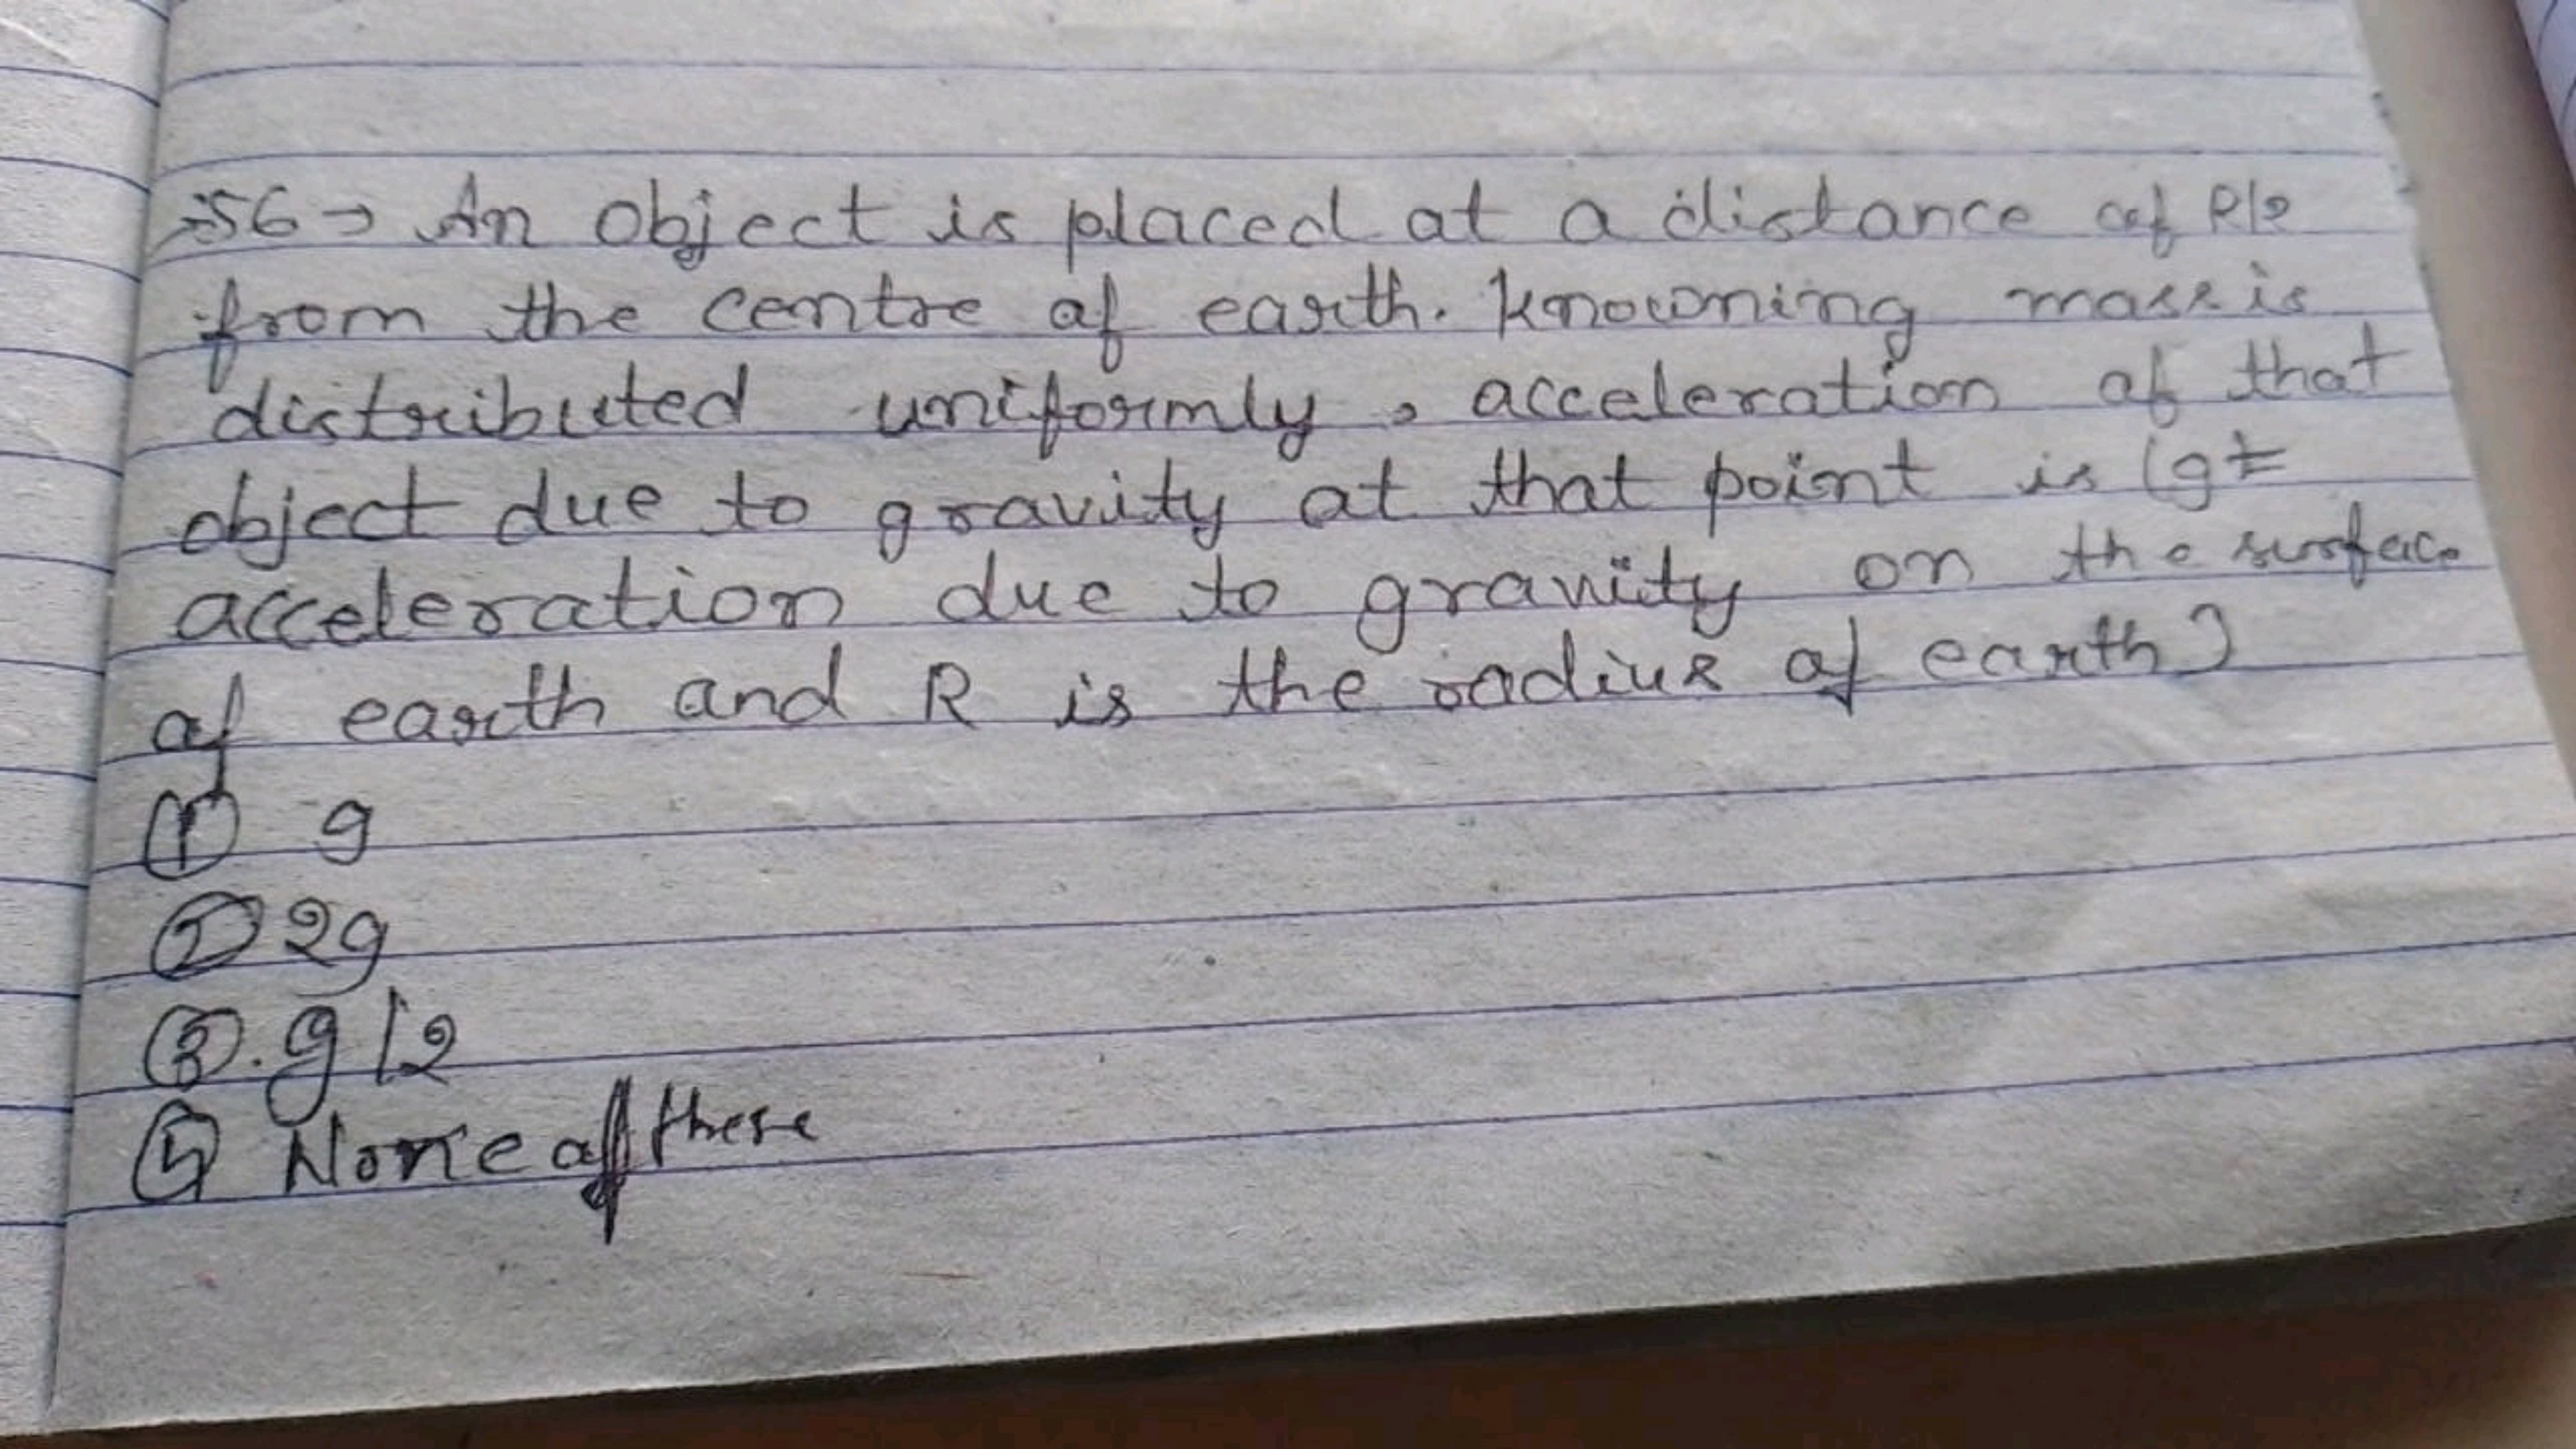 56→ An object is placed at a distance of R/2
from the centre of earth. Knowning mass is
distributed uniformly, acceleration of that
object due to gravity at that point is (g=
acceleration due to gravity on the surface
of earth and R is the radius of earth)
① g
② 2g
③. g/2
④ None of these